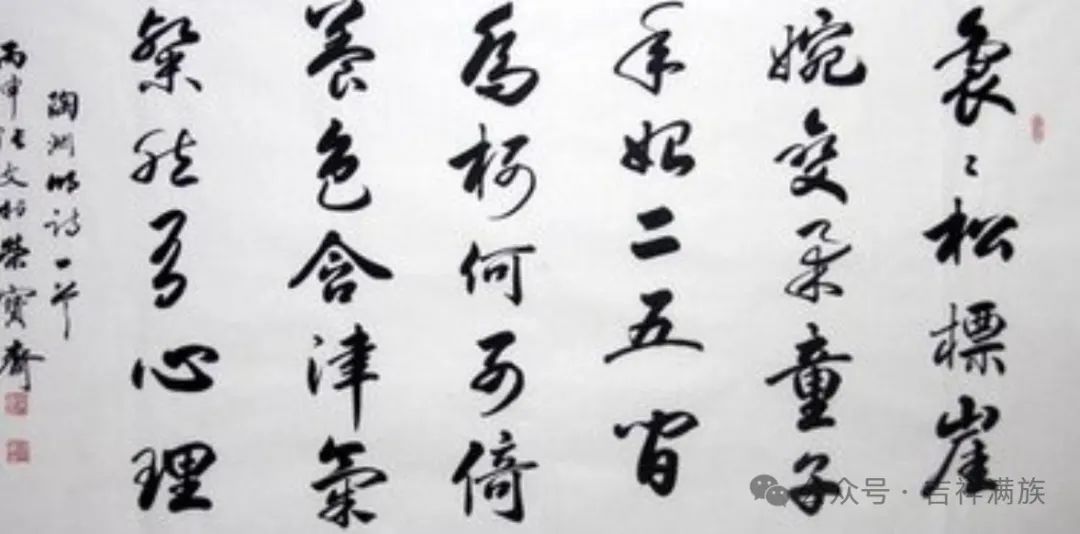 袅々松標崖
婉娈柔童子
年始二五间
喬柯何可倚
養色含津氣
粲然有心理
陶渊明诗一节
丙申张文榮寶齋
公众号 · 吉祥满族